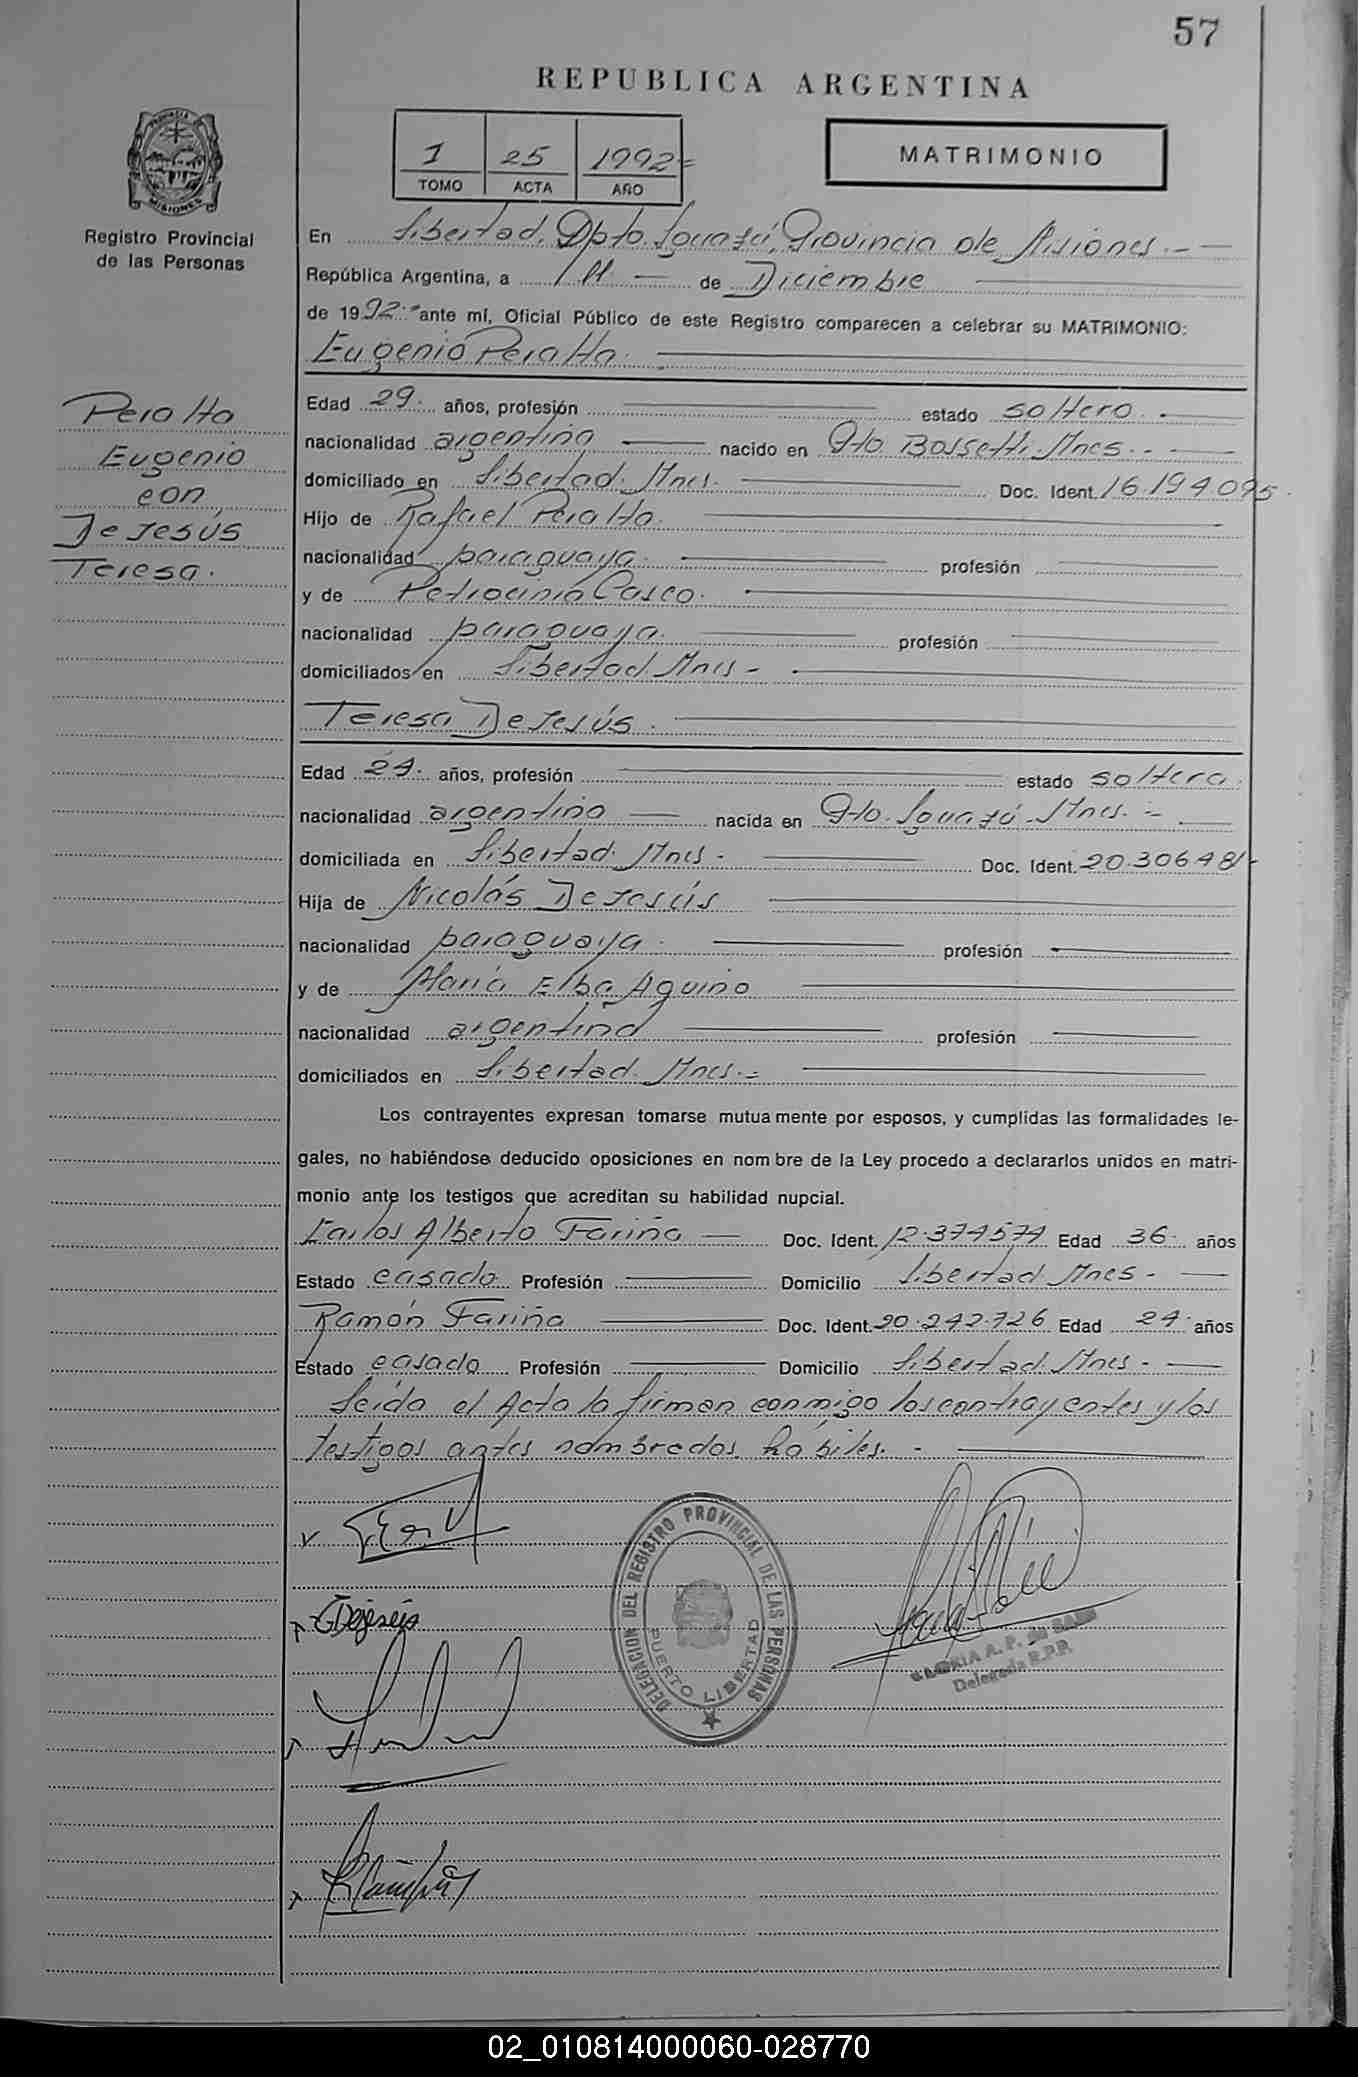 57
REPUBLICA ARGENTINA
1 25 1992=
TOMO ACTA AÑO
MATRIMONIO
PROVINCIA DE
MISIONES
Registro Provincial
de las Personas
En Libertad, Dpto. Iguazú, Provincia de Misiones.-
República Argentina, a 11 de Diciembre
de 1992.- ante mí, Oficial Público de este Registro comparecen a celebrar su MATRIMONIO:
Eugenio Peralta.
Peralta
Eugenio
con
De Jesús
Teresa.
Edad 29. años, profesión estado soltero.
nacionalidad argentina nacido en Pto. Bossetti. Mnes.-
domiciliado en Libertad. Mnes. Doc. Ident. 16.194.095.
Hijo de Rafael Peralta.
nacionalidad paraguaya. profesión
y de Petrocinia Casco.
nacionalidad paraguaya. profesión
domiciliados en Libertad. Mnes-
Teresa De Jesús.
Edad 24. años, profesión estado soltera.
nacionalidad argentina nacida en Pto. Iguazú. Mnes.-
domiciliada en Libertad. Mnes.- Doc. Ident. 20.306.481-
Hija de Nicolás De Jesús
nacionalidad paraguaya. profesión
y de María Elba Aquino
nacionalidad argentina profesión
domiciliados en Libertad. Mnes.=
Los contrayentes expresan tomarse mutuamente por esposos, y cumplidas las formalidades le-
gales, no habiéndose deducido oposiciones en nombre de la Ley procedo a declararlos unidos en matri-
monio ante los testigos que acreditan su habilidad nupcial.
Carlos Alberto Fariña Doc. Ident. 12.374577 Edad 36. años
Estado casado Profesión Domicilio Libertad Mnes-
Ramón Fariña Doc. Ident. 20.242.726 Edad 24. años
Estado casado Profesión Domicilio Libertad. Mnes-
Leída el Acta la firman conmigo los contrayentes y los
testigos antes nombrados, hábiles.-
DELEGACION DEL REGISTRO PROVINCIAL DE LAS PERSONAS
PUERTO LIBERTAD
T Dejesús
GLORIA A. P. de
Delegada R.P.P.
02_010814000060-028770